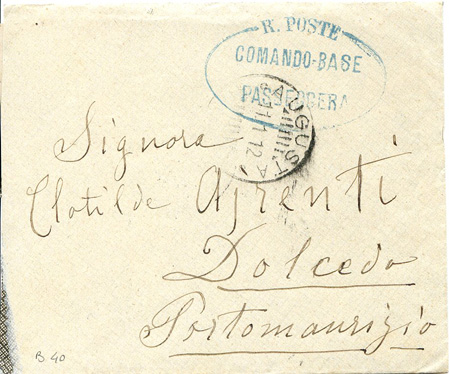 R. POSTE
COMANDO-BASE
PASSEGGERA
AUGUSTA
11.1.12
Signora
Clotilde Agrenti
Dolcedo
Portomaurizio
B 40